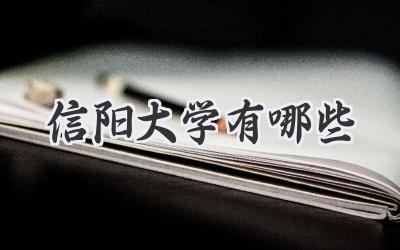 信阳大学有哪些